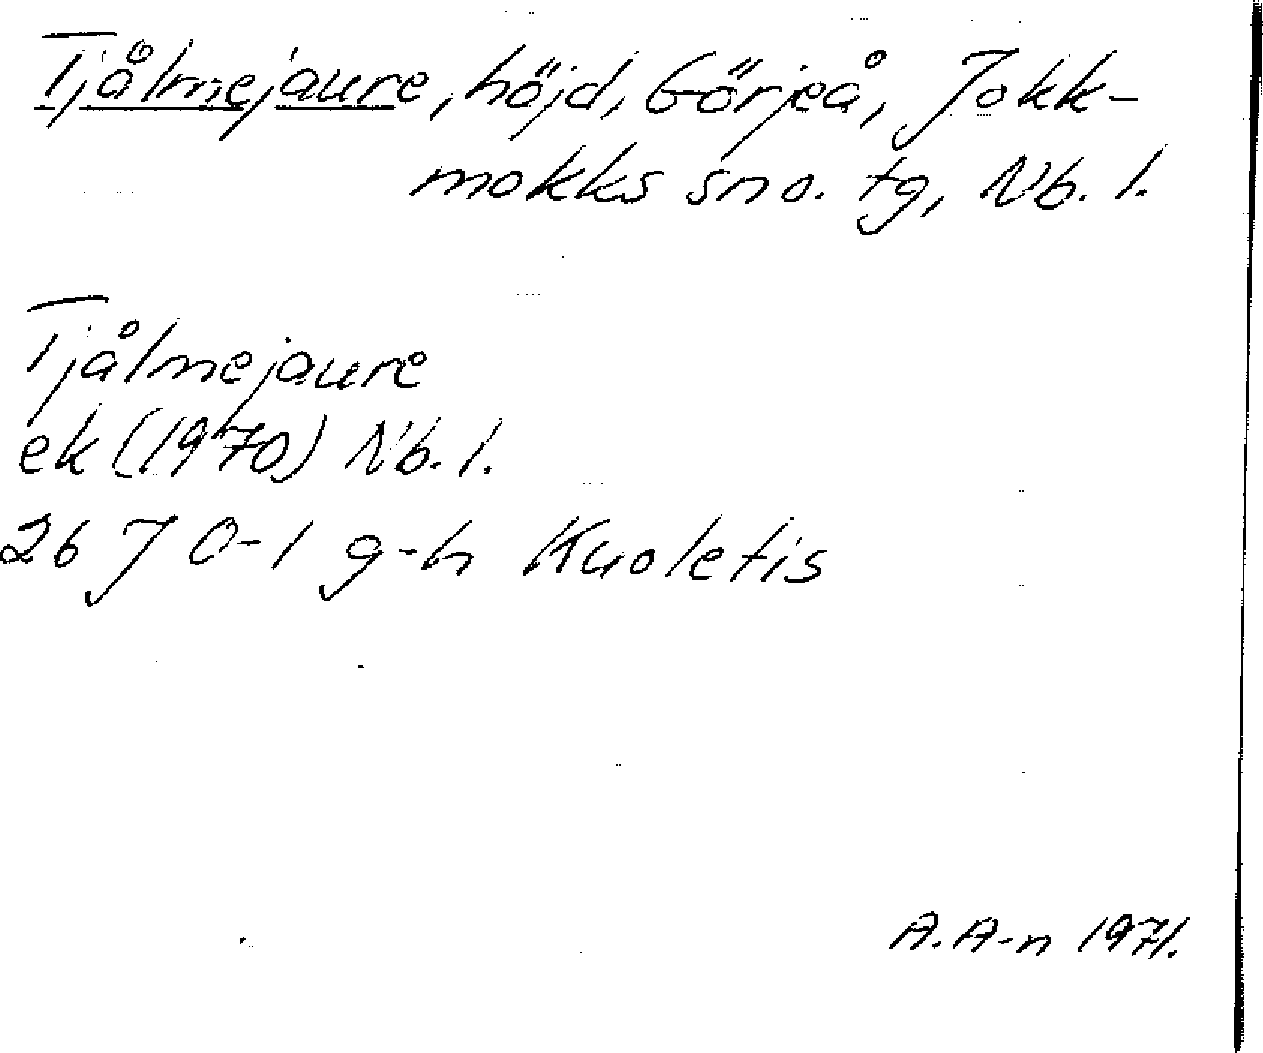 Tjålmejaure, höjd, Görjeå, Jokk-
mokks sno. tg, Nb. l.
Tjålmejaure
ek (1970) Nb. l.
26 J 0-1 g-h Kuoletis
A. A-n 1971.